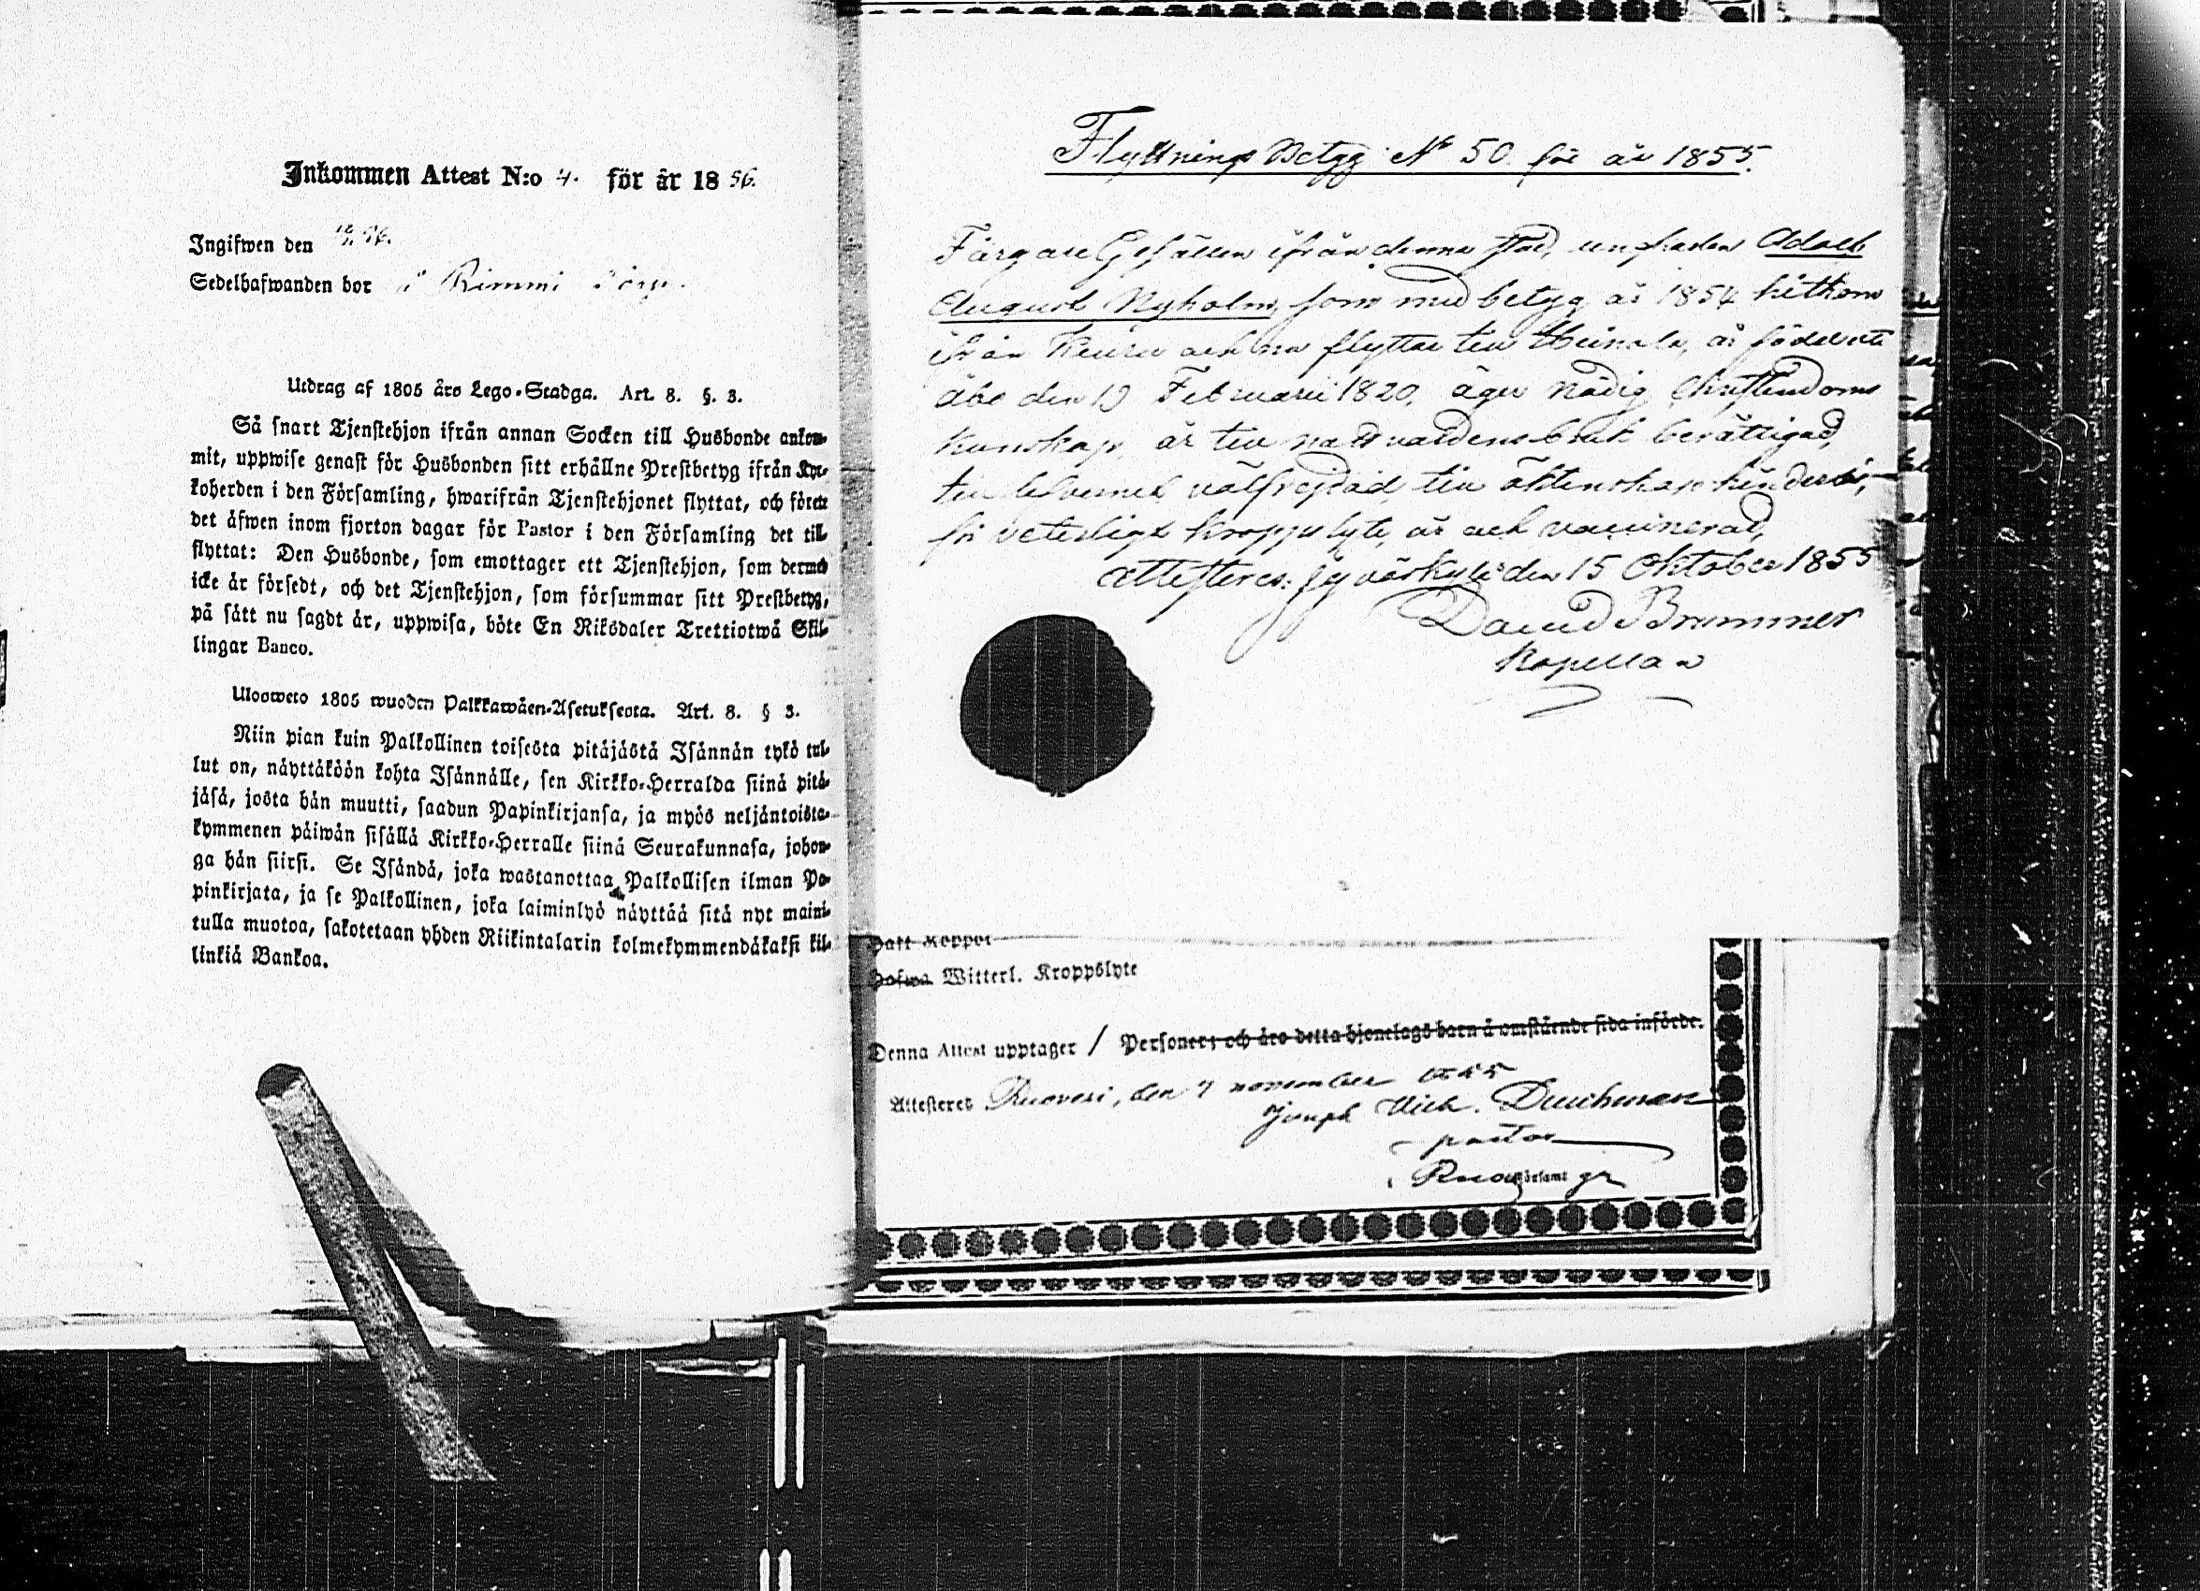 Inkommen Attest N:o 4. för år 1856.
Ingifwen den
Sedelhafwanden bor i Rimmi
Utdrag af 1805 års Lego-Stadga. Art. 8. §. 3.
Så snart Tjenstehjon ifrån annan Socken till Husbonde ankom-
mit, uppwise genast för Husbonden sitt erhållne Prestbetyg ifrån Kyr-
koherden i den Församling, hwarifrån Tjenstehjonet flyttat, och förete
det äfwen inom fjorton dagar för Pastor i den Församling det till-
flyttat: Den Husbonde, som emottager ett Tjenstehjon, som dermed
icke är försedt, och det Tjenstehjon, som försummar sitt Prestbetyg,
på sätt nu sagdt är, uppwisa, böte En Riksdaler Trettiotwå Skil-
lingar Banco.
Uloswero 1805 wuoden Palkkawäen-Asetuksesta. Art. 8. § 3.
Niin pian kuin Palkollinen toisesta pitäjästä Isännän tykö tul-
lut on, näyttäköön kohta Isännälle, sen Kirkko-Herralda siinä pitä-
jäsä, josta hän muutti, saadun Papinkirjansa, ja myös neljäntoista-
kymmenen päiwän sisällä Kirkko-Herralle siinä Seurakunnasa, johon-
ga hän siirsi. Se Isändä, joka wastanottaa Palkollisen ilman Pa-
pinkirjata, ja se Palkollinen, joka laiminlyö näyttää sitä nyt maini-
tulla muotoa, sakotetaan yhden Riikintalarin kolmekymmendäkaksi kil-
linkiä Bankoa.
Flyttnings Betyg No 50 för år 1855.
Färgare Gesällen ifrån denna stad, ungkarlen Adolf
August Nyholm, som med betyg år 1854 hitkom
ifrån Keuru och nu flyttar till Heinola, är född uti
Åbo den 19 Februarii 1820, äger nödig Christendoms
kunskap, är till nattvardens bruk berättigad,
till lefvernet välfrejdad, till äktenskap hinderslös,
fri veterligt kroppslyte, är ock vaccinerad,
attesteras: Jyväskylä den 15 Oktober 1855
David Brummer
Kapellan
Haft Koppor
Hafwa Witterl. Kroppslyte
Denna Attest upptager / Personer; och äro detta hjonelags barn å omstående sida införde.
Attesteres Ruovesi, den 7 november 1855
Joseph Wilh. Durchman
pastor